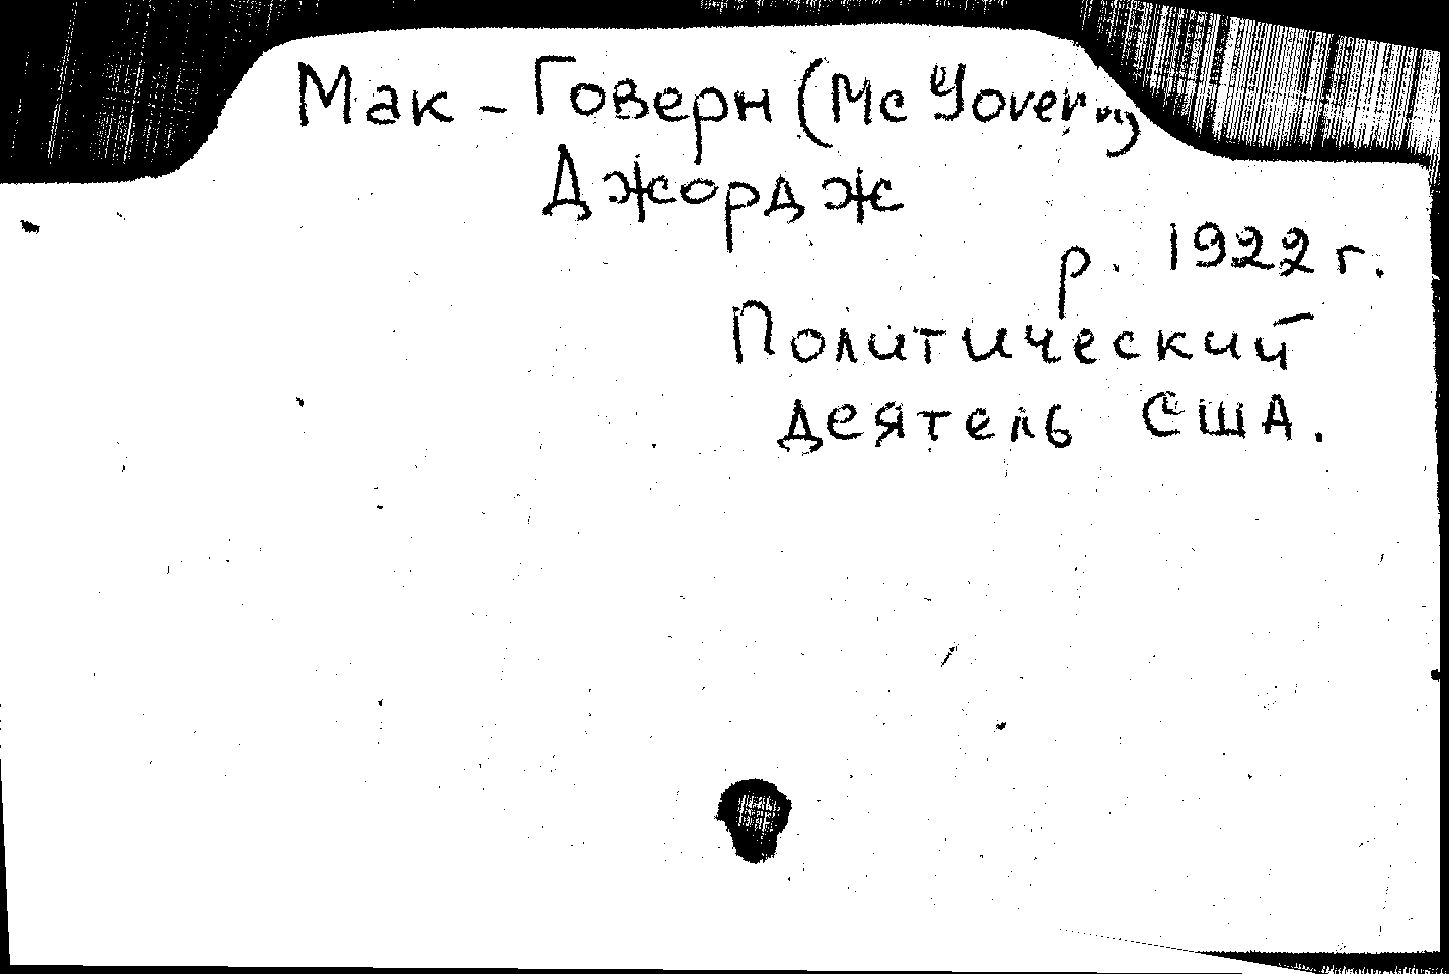 Мак - Говерн (Mc Govern)
Джордж
р. 1922 г.
Политический
деятель США.